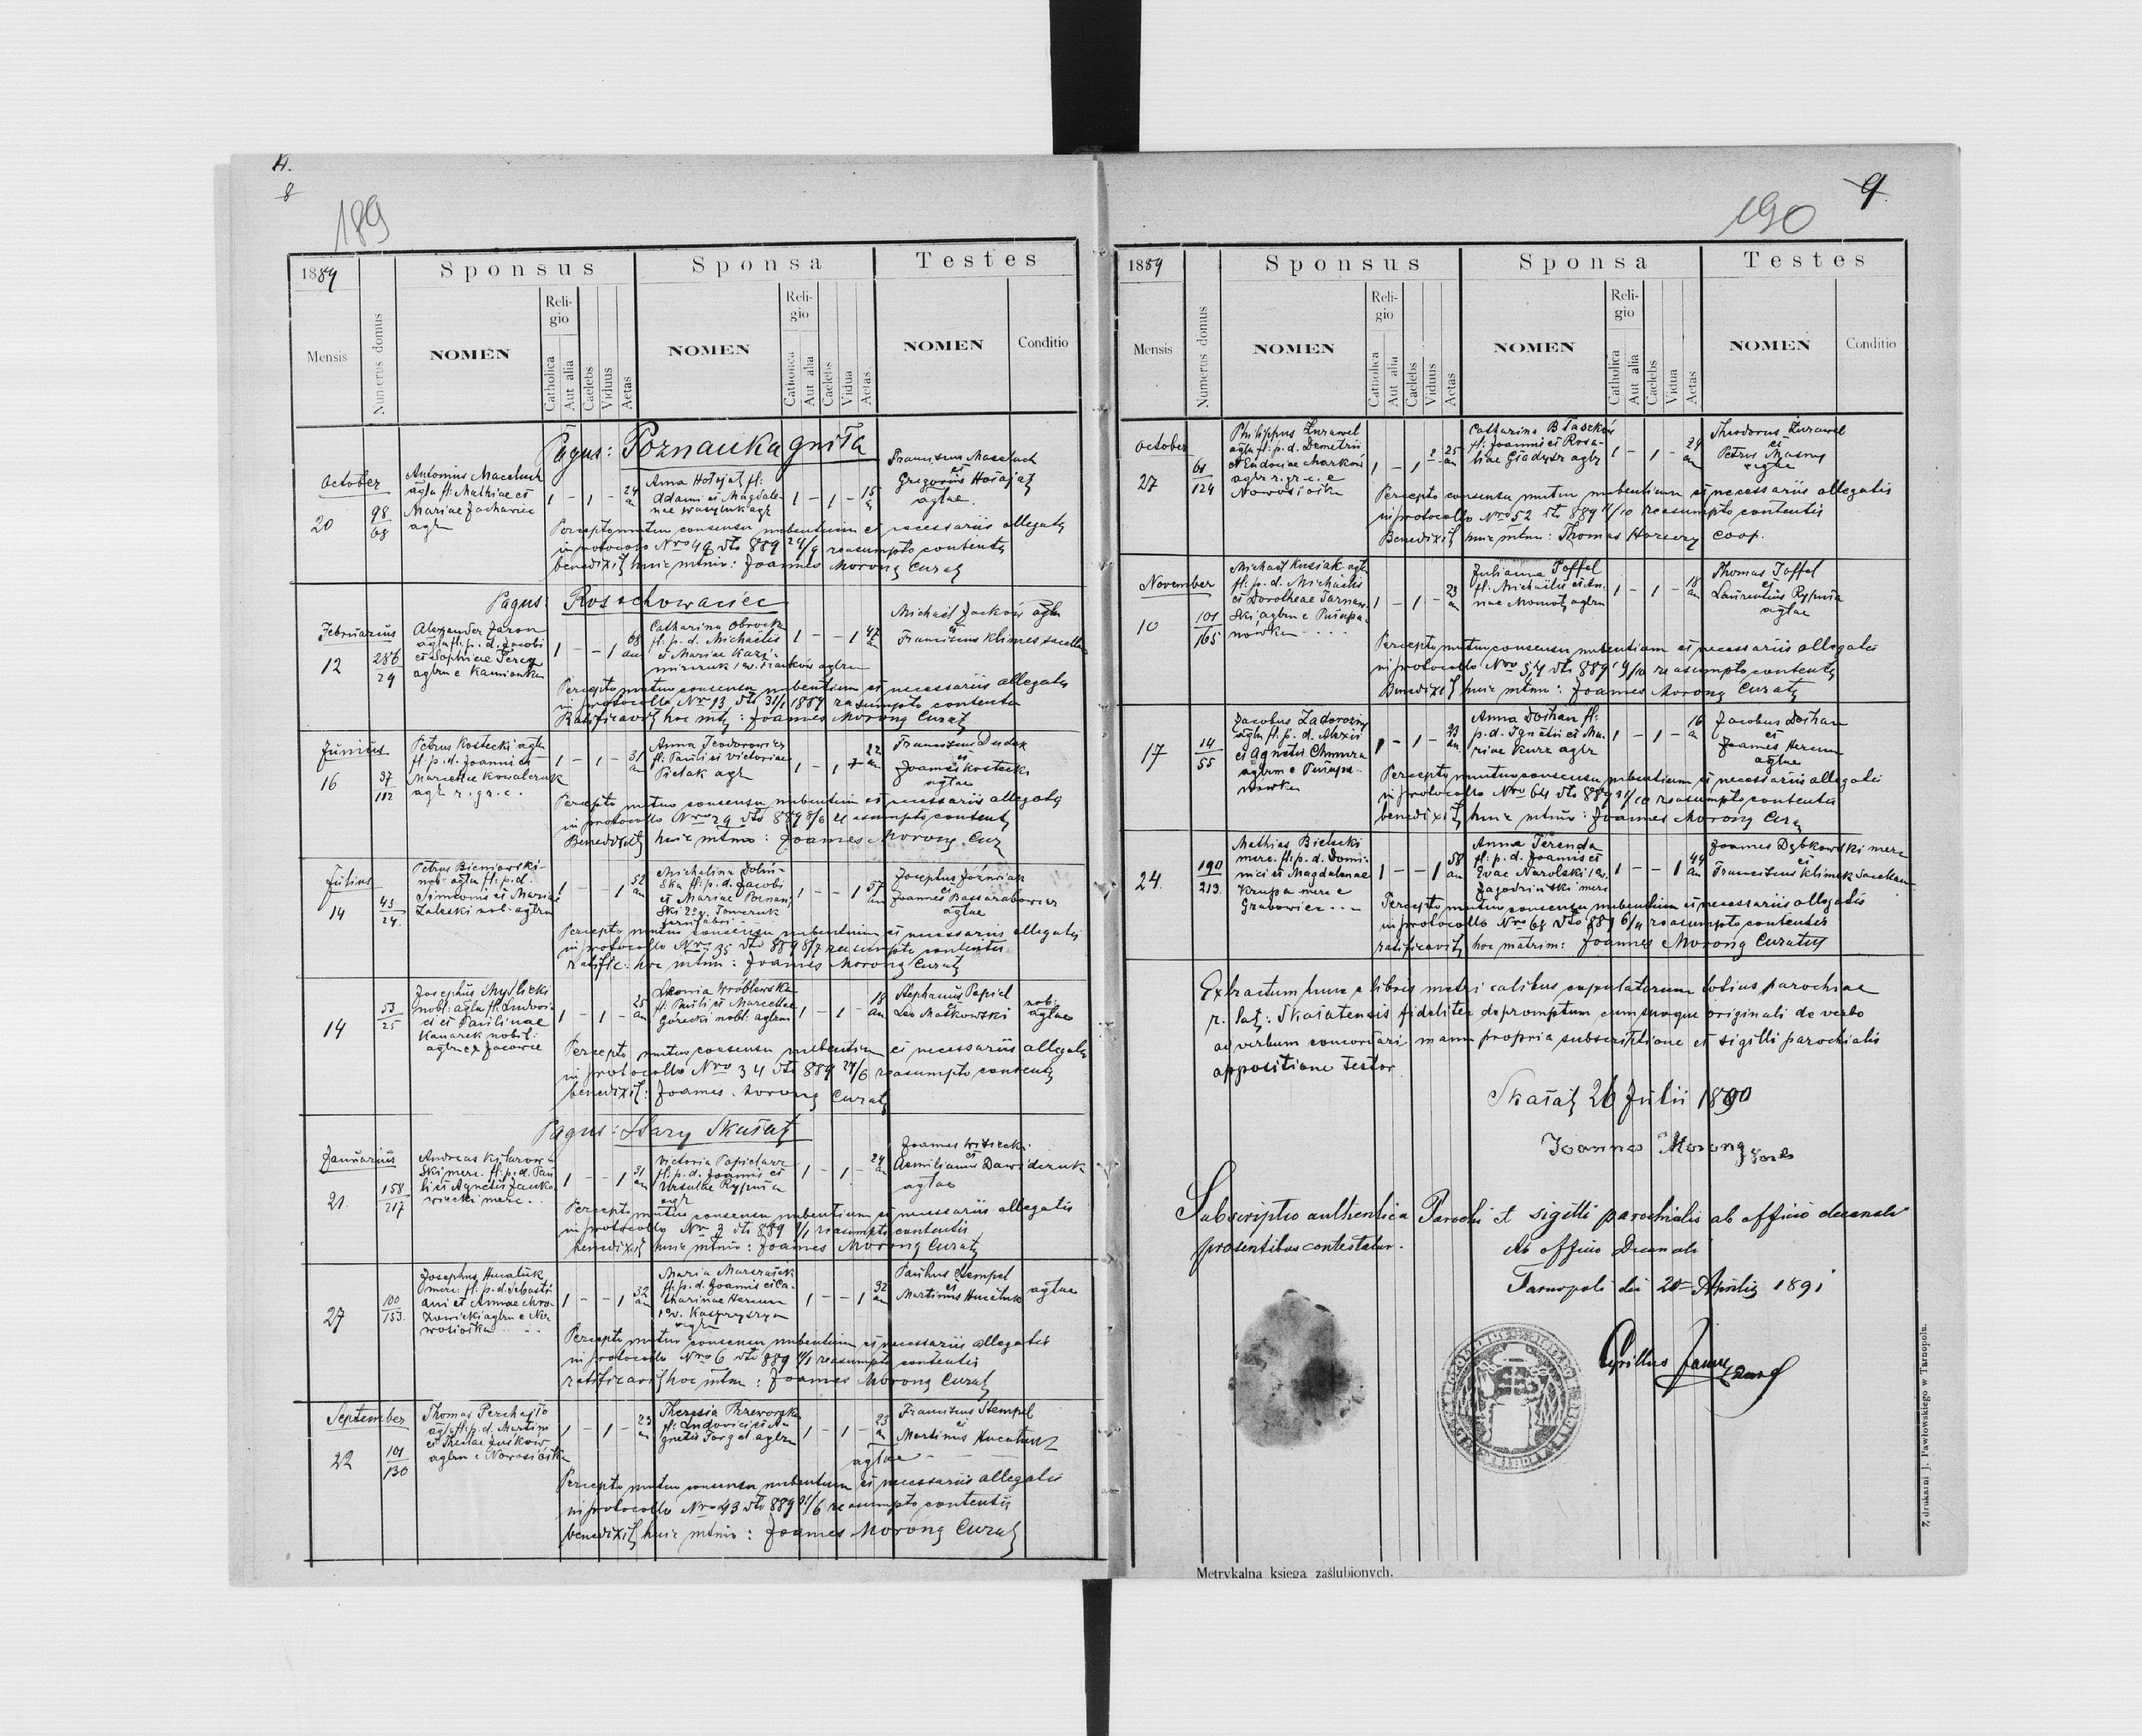 4.
8
189
1889
Sponsus
Sponsa
Testes
Mensis
Numerus domus
NOMEN
Religio
Catholica
Aut alia
Caelebs
Viduus
Aetas
NOMEN
Religio
Catholica
Aut alia
Caelebs
Vidua
Aetas
NOMEN
Conditio
Pagus: Poznanka gniła
October
20
98
68
Antonius Maceluch
agla fl: Mathiae et
Mariae Zachariec
agr
1 - 1 - 24 an
Anna Hołojat fl:
Adami et Magdale-
nae Wasyluk agr
1 - 1 - 15 a
Franciscus Maceluch
et
Gregorius Hołojat
aglae
Percepto mutuo consensu nubentium et necessariis allegatis
in protocollo Nro 49 dto 889 24/9 reasumpto contentis
benedixit huic mtnio: Joannes Morong Curat
Pagus: Rosochowaciec
Februarius
12
286
29
Alexander Zaron
agla fl: p. d. Jacobi
et Sophiae Tereg
agbru e Kamionka
1 - - 1 68 an
Catharina Obrock
fl: p. d. Michaelis
et Mariae Kazi-
mirczuk 1 v. Franków agbru
1 - - 1 47 a
Michael Jacków agla
et
Franciscus Klimes sacellan
Percepto mutuo consensu nubentium et necessariis allegatis
in protocollo Nro 13 dto 31/1 1889 reasumpto contentis
Ratificavit hoc mtr: Joannes Morong Curat
Junius
16
37
112
Petrus Kostecki agla
fl. p. d. Joannis et
Marcellae Kowalczuk
agr r. gr. c.
1 - 1 - 31 an
Anna Teodorowicz
fl: Pauli et Victoriae
Pielak agr
1 - 1 - 22 an
Franciscus Dudek
et
Joannes Kostecki
aglae
Percepto mutuo consensu nubentium et necessariis allegatis
in protocollo Nro 29 dto 889 8/6 reasumpto contentis
Benedixit huic mtnio: Joannes Morong Cur
Julius
14
43
24
Petrus Bieniawski
nob. agla fl: p. d.
Simeonis et Mariae
Zaleski nob. agbru
1 - - 1 52 an
Michalina Doliń-
ska fl: p. d. Jacobi
et Mariae Poznań
ski 2o v. Tomczuk
ferri fabri
1 - - 1 57 an
Josephus Jóźwiak
et
Joannes Bassarabowicz
aglae
Percepto mutuo consensu nubentium et necessariis allegatis
in protocollo Nro 35 dto 889 8/7 reasumpto contentis
ratific: hoc mtnm: Joannes Morong Curat
14
53
25
Josephus Mydlicki
nobl: agla fl: Ludovi-
ci et Paulinae
Kanarek nobil:
agbru ex Jacowce
1 - 1 - 25 an
Leonia Wróblewska
fl: Pauli et Marcellae
Górecki nobl: agbru
1 - 1 - 18 an
Stephanus Papiel
et
Leo Małkowski
nob:
aglae
Percepto mutuo consensu nubentium et necessariis allegatis
in protocollo Nro 34 dto 889 27/6 reasumpto contentis
benedixit: Joannes Morong Curat
Pagus: Stary Skałat
Januarius
21.
158
217
Andreas Kilarow-
ski merc. fl: p. d. Pau
li et Agnetis Janko
wiecki merc.
1 - - 1 31 an
Victoria Papiełarz
fl: p. d. Joannis et
Ursulae Rypnia
agr
1 - 1 - 24 an
Joannes Witecki
et
Aemilianus Dawideruk
aglae
Percepto mutuo consensu nubentium et necessariis allegatis
in protocollo Nro 3 dto 889 9/1 reasumpto contentis
benedixit huic mtnio: Joannes Morong Curat
27
100
153
Josephus Hucaluk
merc. fl: p. d. Sebasti
ani et Annae Mro-
zowicki agbru e No-
wosiołka
1 - - 1 32 an
Maria Marszałek
fl: p. d. Joannis et Ca-
tharinae Hercun
1o v. Kasprzyszyn
agr
1 - - 1 32 an
Paulus Stempel
et
Martinus Hucaluk
aglae
Percepto mutuo consensu nubentium et necessariis allegatis
in protocollo Nro 6 dto 889 11/1 reasumpto contentis
ratificavit hoc mtnm: Joannes Morong Curat
September
22
101
130
Thomas Perchajło
agla fl: p. d. Martini
et Theclae Juśków
agbru e Nowosiółka
1 - 1 - 23 an
Theresia Przeworska
fl: Ludovici et A-
gnetis Forgel agbru
1 - 1 - 23 a
Franciscus Stempel
et
Martinus Hucaluk
aglae
Percepto mutuo consensu nubentium et necessariis allegatis
in protocollo Nro 43 dto 889 21/6 reasumpto contentis
benedixit huic mtnio: Joannes Morong Curat
9
190
1889
Sponsus
Sponsa
Testes
Mensis
Numerus domus
NOMEN
Religio
Catholica
Aut alia
Caelebs
Viduus
Aetas
NOMEN
Religio
Catholica
Aut alia
Caelebs
Vidua
Aetas
NOMEN
Conditio
October
27
61
124
Philippus Żurawel
agla fl: p. d. Demetrii
et Eudociae Marków
agbr r. gr. c. e
Nowosiołka
1 - 1 - 25 an
Catharina Błaszków
fl: Joannis et Rosa-
liae Gładysz agbr
1 - 1 - 24 an
Theodorus Żurawel
et
Petrus Mazur
aglae
Percepto consensu mutuo nubentium et necessariis allegatis
in protocollo Nro 52 dto 889 4/10 reasumpto contentis
Benedixit huic mtnio: Thomas Horzery coop.
November
10
101
165
Michael Kusiak agla
fl: p. d. Michaelis
et Dorotheae Tarnaw-
ski agbru e Panasa-
nówka
1 - 1 - 23 an
Juliana Joffel
fl: Michaelis et An-
nae Momot agbru
1 - 1 - 18 an
Thomas Joffel
et
Laurentius Rypnia
aglae
Percepto mutuo consensu nubentium et necessariis allegatis
in protocollo Nro 54 dto 889 19/10 reasumpto contentis
Benedixit huic mtnm: Joannes Morong Curat
17
14
55
Jacobus Zadorożny
agla fl. p. d. Alexii
et Agnetis Chmura
agbru e
1 - 1 - 23 an
Anna Dothan fl:
p. d. Ignatii et Ma-
riae Kurz agbr
1 - 1 - 16 a
Jacobus Dothan
et
Joannes Hercun
aglae
Percepto mutuo consensu nubentium et necessariis allegatis
in protocollo Nro 64 dto 889 31/10 reasumpto contentis
benedixit huic mtnio: Joannes Morong Cur
24
190
213
Mathias Bielecki
merc. fl: p. d. Domi-
nici et Magdalenae
Krupa merc e
Grabowiec
1 - - 1 58 an
Anna Ferenda
fl: p. d. Joannis et
Evae Narolski 1 v.
Zagodziński merc
1 - - 1 44 an
Joannes Dąbkowski merc
et
Franciscus Klimek sacellan
Percepto mutuo consensu nubentium et necessariis allegatis
in protocollo Nro 68 dto 889 6/11 reasumpto contentis
ratificavit hoc matrim: Joannes Morong Curatus
Extractum hunc e libris metricalibus copulatorum totius parochiae
r. lat: Skałatensis fideliter depromptum cumque originali de verbo
ad verbum concordari manu propria subscriptione et sigilli parochialis
appositione testor
Skałat 26 Julii 1890
Joannes Morong
Subscriptio authentica Parochi et sigilli parochialis ab officio decanali
praesentibus contestatur.
Ab officio Decanali
Tarnopoli die 20 Aprilis 1891
Cyrillus
Z drukarni J. Pawłowskiego w Tarnopolu.
Metrykalna księga zaślubionych.